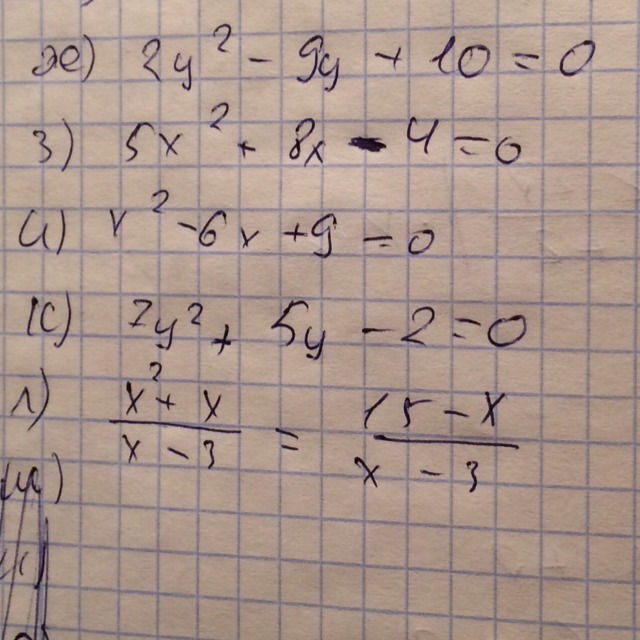 ж) 2y² - 9y + 10 = 0
з) 5x² + 8x - 4 = 0
и) x² - 6x + 9 = 0
к) 7y² + 5y - 2 = 0
л) (x² + x)/(x - 3) = (15 - x)/(x - 3)
м)